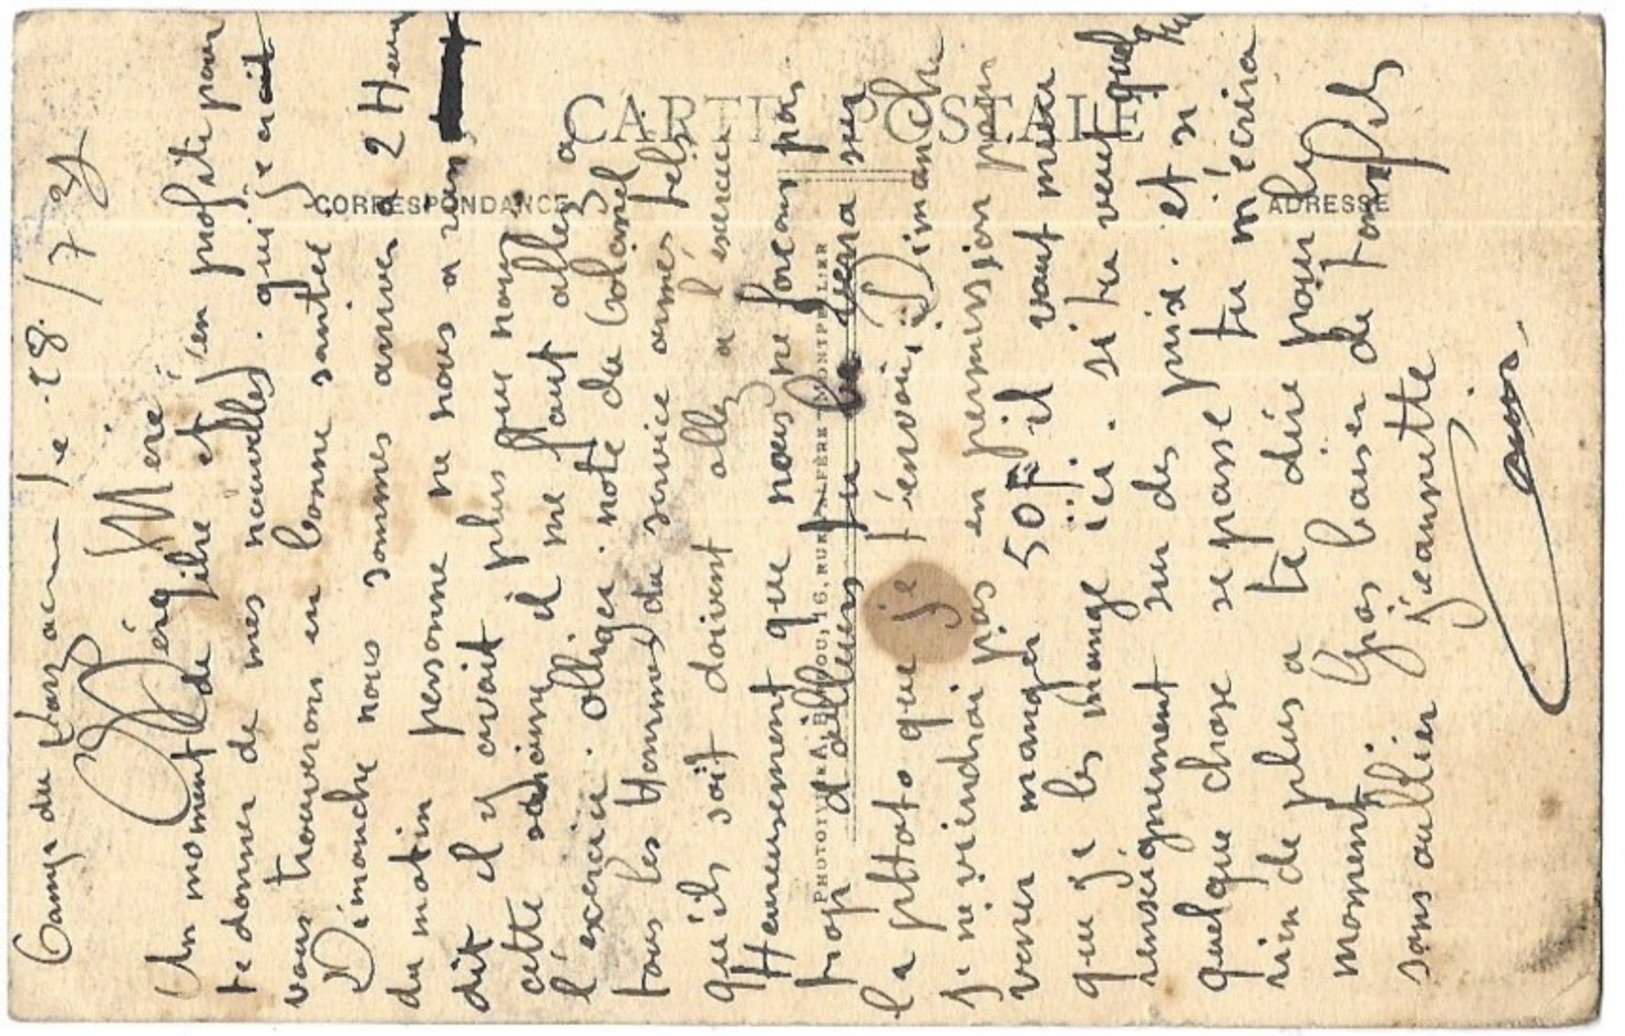 CARTE POSTALE
CORRESPONDANCE
ADRESSE
PHOTOTYPIE A. BARDOU, 16, RUE MONTPELLIER
Camp du Larzac le 28. /7 31
Mère
Un moment de libre et j'en profite pour
te donner de mes nouvelles. qui je crois
vous trouverons en bonne santée.
Dimanche nous sommes arrivés a 2 Heur
du matin personne ne nous a rien
dit il y avait plus que nous a
cette il me faut allez a
l'exercice. obliger. note du Colonel
tous les Hommes du service armés
qu'ils soit doivent allez a l'exercice
Heureusement que nous ne forcons pas
trop d'ailleurs tu le verra sur
la photo que je t'envoi. Dimanche
je ne viendrai pas en permission pour
venir manger 50F il vaut mieux
que je les mange ici. si tu veut quelq
renseignement sur des prix. et si
quelque chose se passe tu m'écrira
rien de plus a te dire pour le
moment. Gros baiser de ton fils
sans oublier jeannette